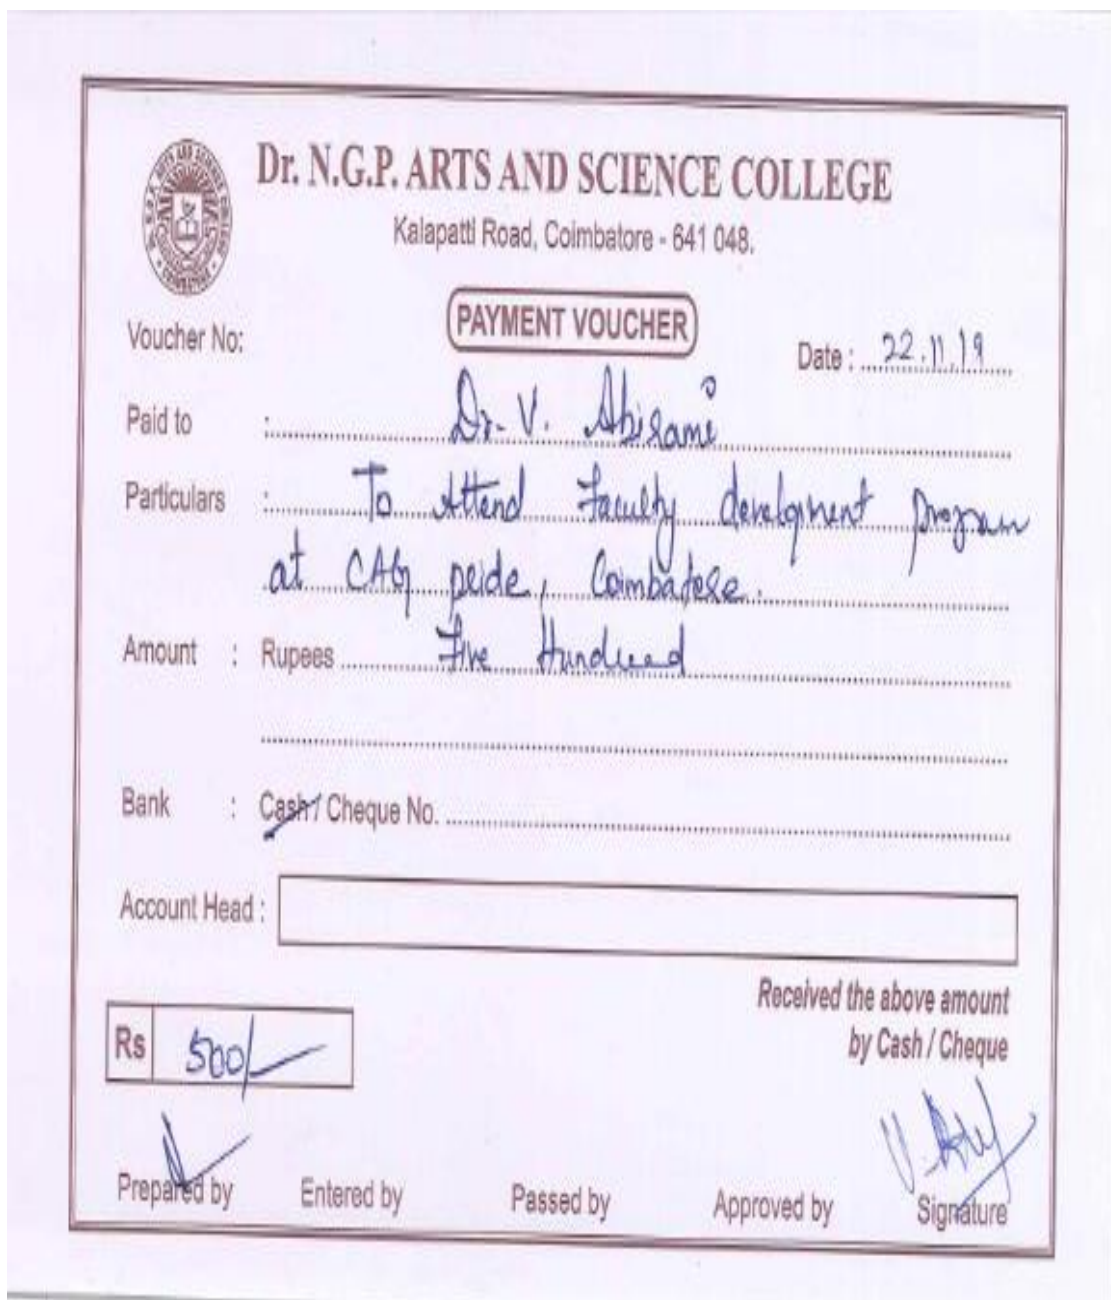 Dr. N.G.P. ARTS AND SCIENCE COLLEGE
Kalapatti Road, Coimbatore - 641 048.
PAYMENT VOUCHER
Voucher No:
Date : 22.11.19
Paid to : Dr. V. Abirami
Particulars : To Attend Faculty development program
at CAG pride, Coimbatore.
Amount : Rupees Five Hundred
Bank : Cash / Cheque No.
Account Head :
Received the above amount
by Cash / Cheque
Rs 500/-
Prepared by Entered by Passed by Approved by Signature